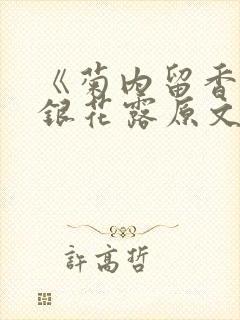 《菊内留香
銀花露原文
許高哲